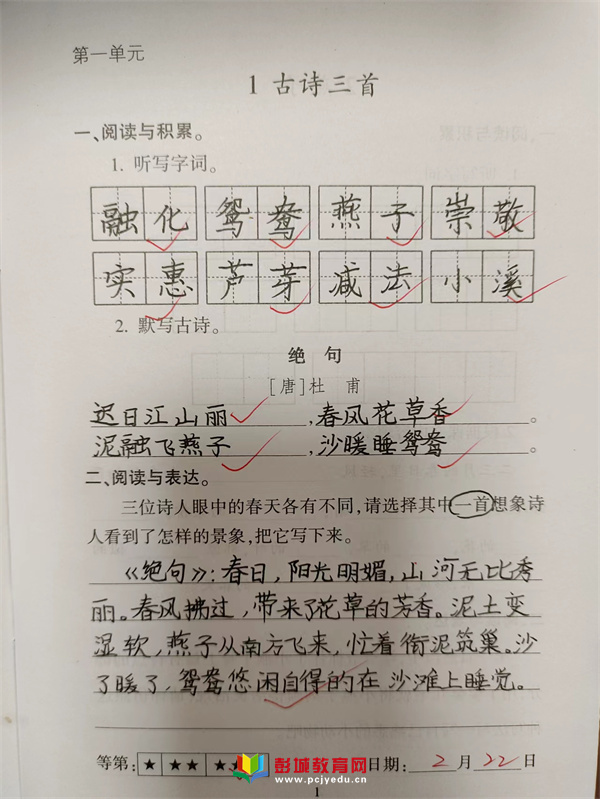 第一单元
1 古诗三首
一、阅读与积累。
1. 听写字词。
融化 鸳鸯 燕子 崇敬
实惠 芦芽 减法 小溪
2. 默写古诗。
绝 句
[唐]杜 甫
迟日江山丽,春风花草香。
泥融飞燕子,沙暖睡鸳鸯。
二、阅读与表达。
三位诗人眼中的春天各有不同,请选择其中一首想象诗
人看到了怎样的景象,把它写下来。
《绝句》:春日,阳光明媚,山河无比秀
丽。春风拂过,带来了花草的芳香。泥土变
湿软,燕子从南方飞来,忙着衔泥筑巢。沙
了暖了,鸳鸯悠闲自得的在沙滩上睡觉。
等第: ★ ★★ ★ 日期: 2 月 22 日
彭城教育网
www.pcjyedu.com
1